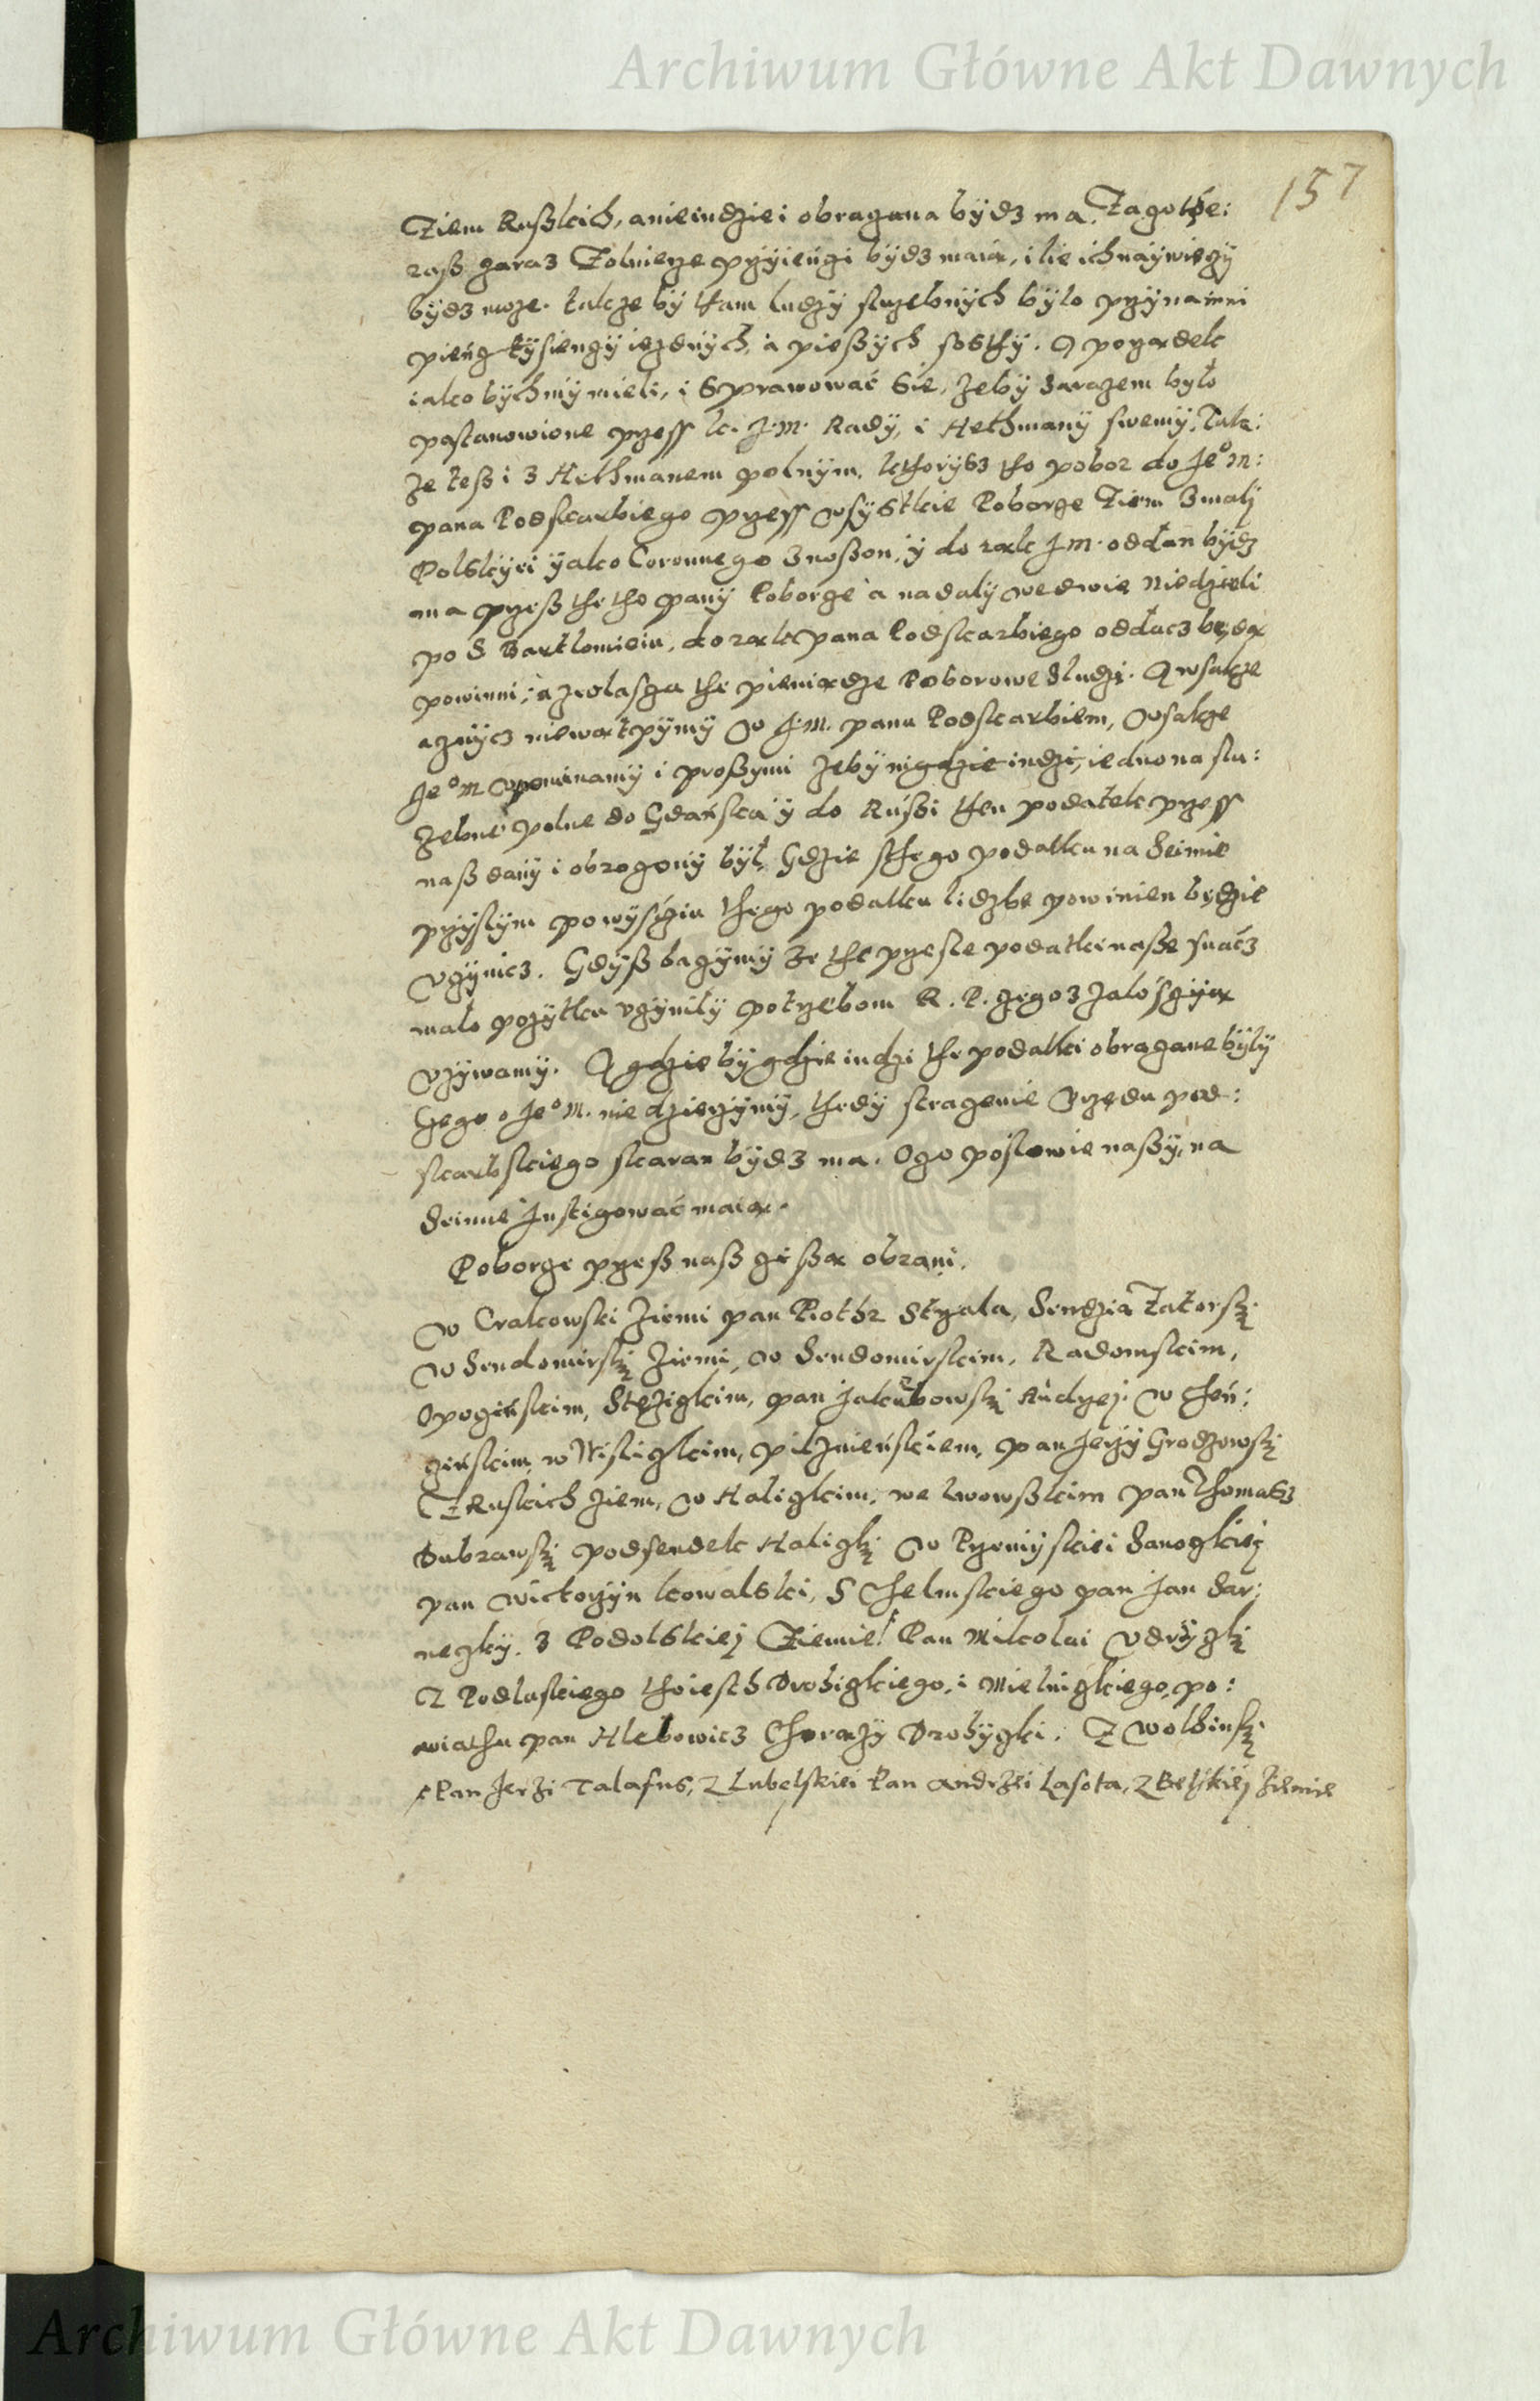 Archiwum Główne Akt Dawnych
157
Ziem Rußkich, anieindziei obraczana bydz ma. Zagotwe:
raß zaraz Zolnierze przyiençi bydz maia, ilie ich naywięcy
bydz może. takze by tham ludzy służebnych było przynaimi
pieńcz tysiency iezdnych, a pießych sosthy. O porządek
iako bychmy mieli, i sprawować sie, żeby zarazem było
postanowione przess K. J. M. Rady, i Hethmany swemy. Tak:
że teß i z Hethmanem polnym, kthorysz tho pobor do Jeº M:
pana Podskarbiego przess wsystkie Poborce Ziem z mały
Polskyi yako Coronnego znoßon, y do rak J M. oddan bydz
ma przeß the tho pany Poborce a nadaly we dwie Niedzieli
po S Bartlomieiu, do rak pana Podskarbiego oddacz będą
powinni, a zwłascza the pieniądze Poborowe Słudzi. A wsakże
aznycz niewątpymy w J. M. panu Podskarbiem, wsakże
Jeº M upominamy i proßymi żeby nigdzie indzi, iedno na słu:
żebne polne do Gdańska y do Rußi then podatek przess
naß dany i obrocony był. Gdzie sthego podatku na Seimie
przyslym powyściu thego podatku lidzbe powinien będzie
uczynicz. Gdyß baczymy że the przesłe podatki naße snacz
mało pożytku uczynily potrzebom R. P. czego z żałościyą
używamy. A gdzieby gdzie indzi the podatki obracane były
Czego o Jeº M. nie dzierzymy, thedy straczenie Urzędu pod:
skarbskiego skaran bydz ma. Ogo posłowie naßy, na
Seimie Justigować maią.
Poborce przeß naß ci ßą obrani.
W Crakowski ziemi pan Piothr Strzala, Sendzia Zatorsky
W Sendomirsky ziemi, w Sendomirskim, Radomskim,
Opoczińskim, Stężickim, pan Jakubowsky Andrzej. w Chęń:
czińskim, w Wislickim, pilznieńskiem, pan Jerzy Grodzowsky
Z Ruskich ziem, w Halickim, we lwowßkim pan Thomasz
Dubrawsky podsendek Halicky w Przemyskiei Sanockiej
pan Wictorzyn kowalski, S Chelmskiego pan Jan Sar:
neczky. z Podolskiej Ziemie Pan Mikolai Udrycky
Z Podlaskiego thoiesth Drohickiego, i Mielnickiego, po:
wiathu pan Hlebowicz Chorąży Drohycki. Z Wolhinsky
Pan Jerzi Talafus, Z Lubelskiei Pan Andrzei Lasota, Z Belskiej Ziemie
Archiwum Główne Akt Dawnych